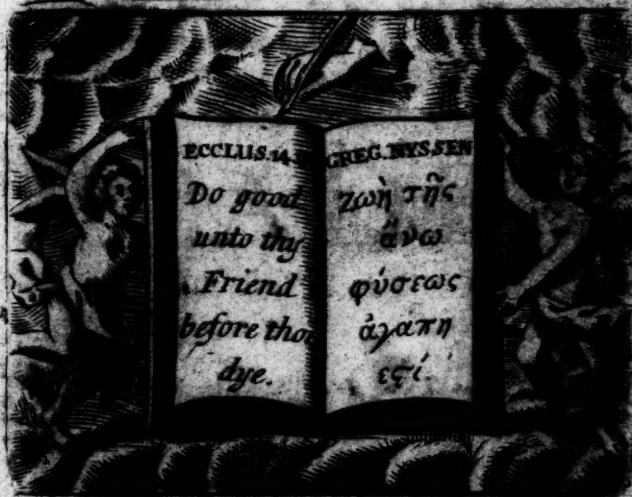 ECCLUS. 14.
Do good
unto thy
Friend
before thou
dye.
GREG. NYSSEN
ζωὴ τῆς
ἄνω
φύσεως
ἀγαπη
εϛί.